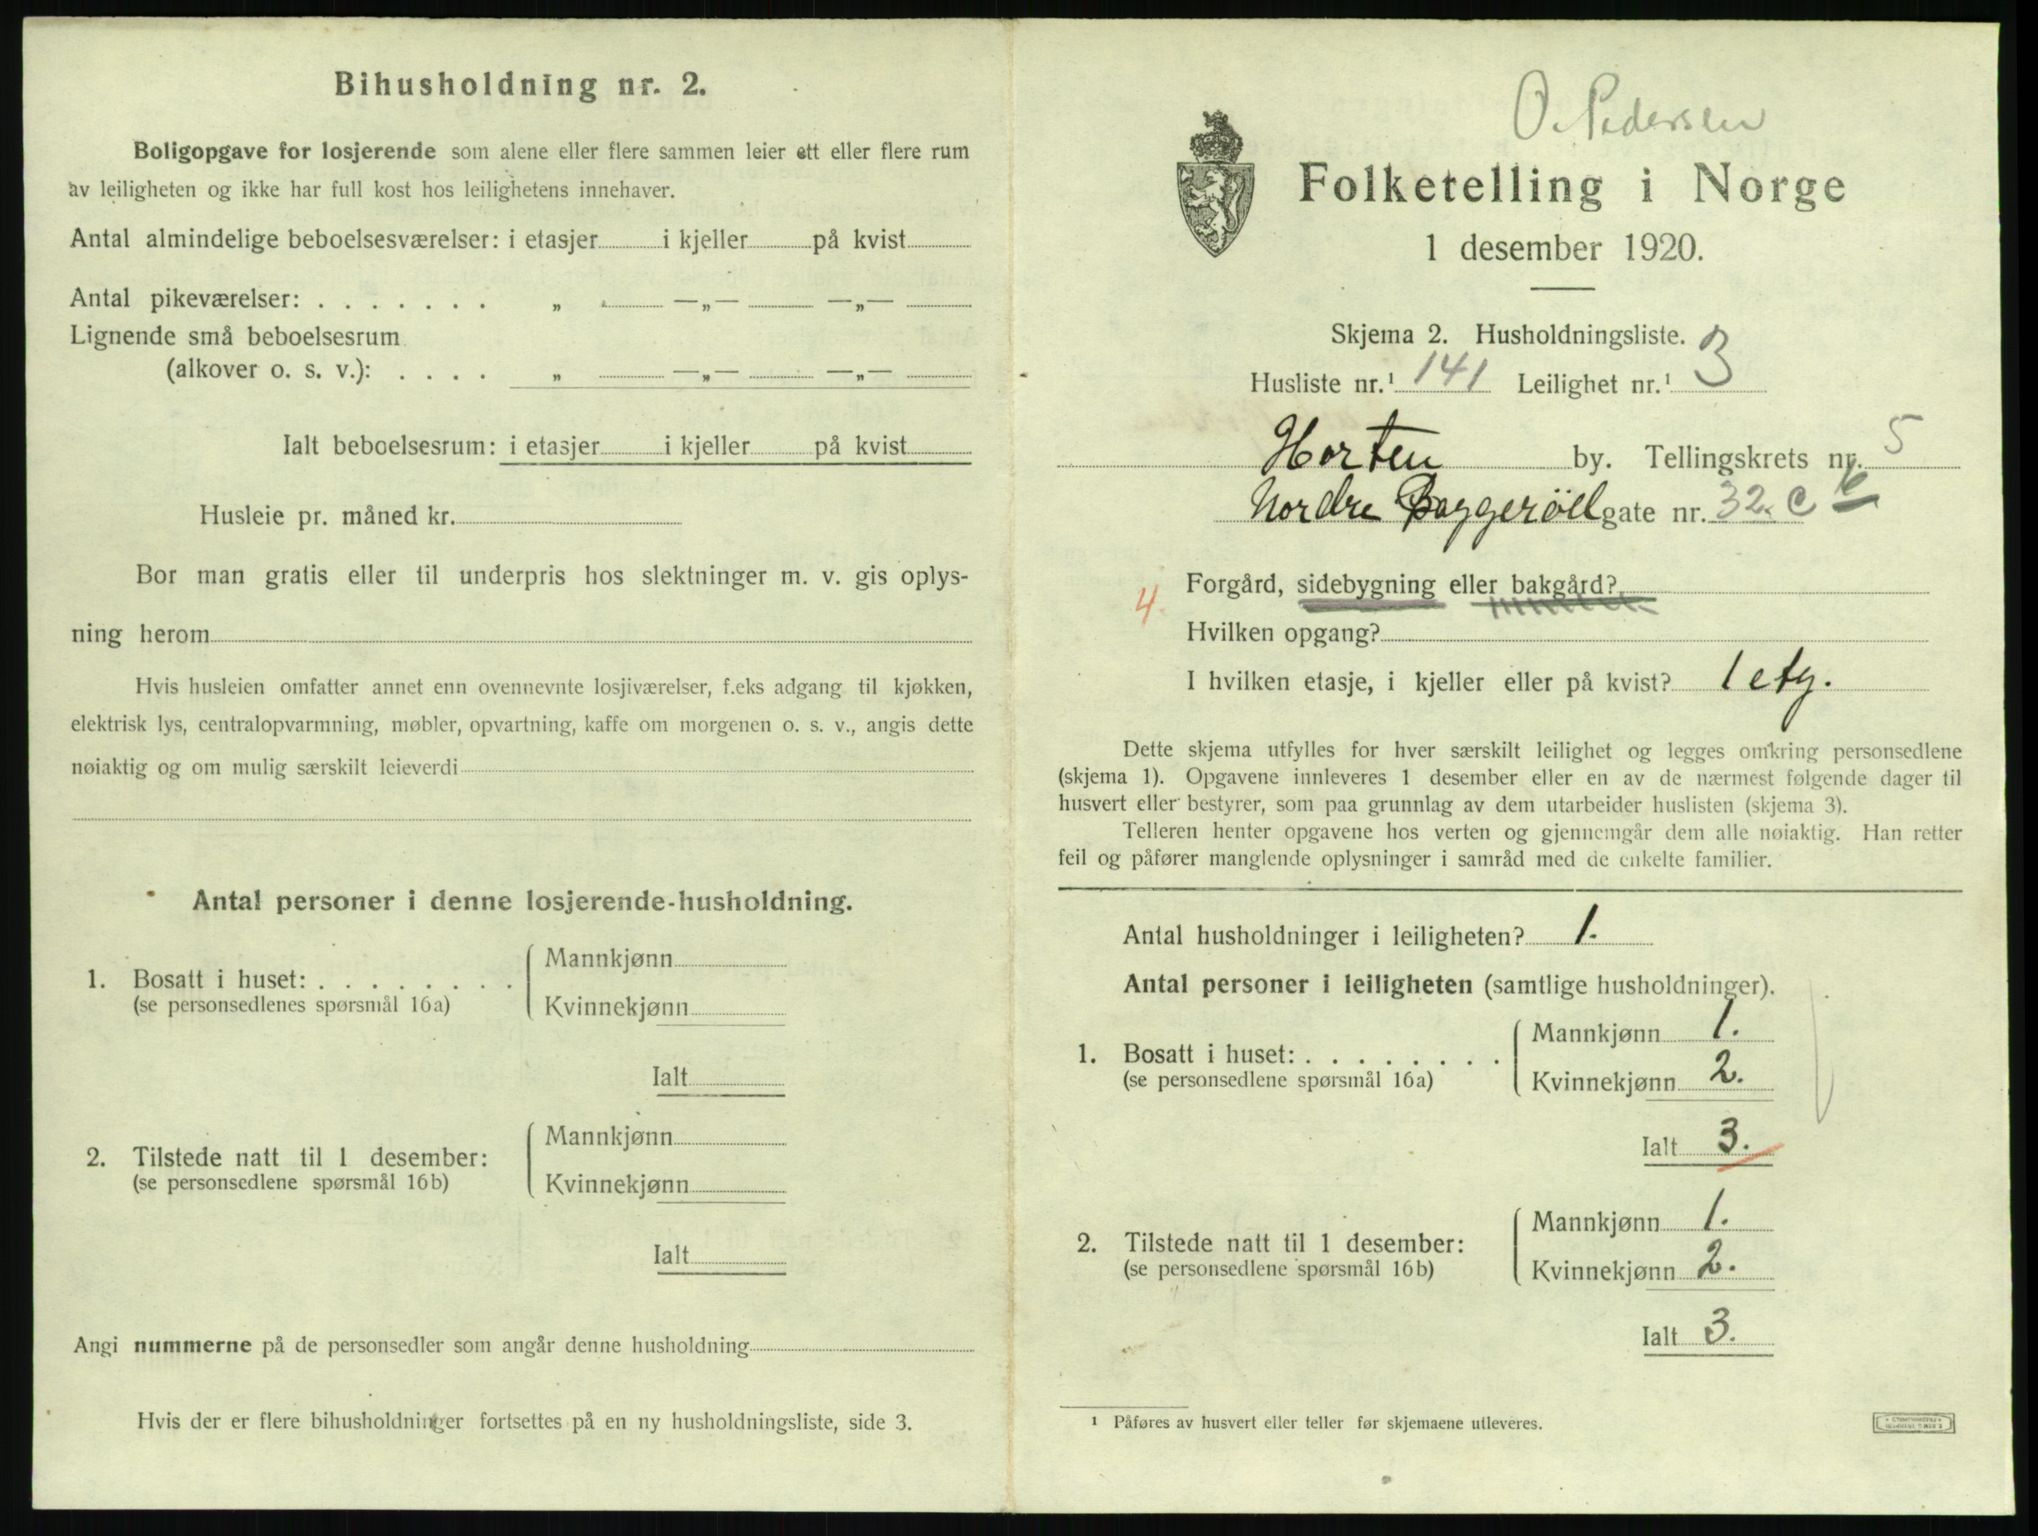 Bihusholdning nr. 2.
Boligopgave for losjerende som alene eller flere sammen leier ett eller flere rum
av leiligheten og ikke har full kost hos leilighetens innehaver.
Antal almindelige beboelsesværelser: i etasjer i kjeller på kvist
Antal pikeværelser: . . . . . . . „ —„— —„—
Lignende små beboelsesrum
(alkover o. s. v.): . . . . „ —„— —„—
Ialt beboelsesrum: i etasjer i kjeller på kvist
Husleie pr. måned kr.
Bor man gratis eller til underpris hos slektninger m. v. gis oplys-
ning herom
Hvis husleien omfatter annet enn ovennevnte losjiværelser, f.eks adgang til kjøkken,
elektrisk lys, centralopvarmning, møbler, opvartning, kaffe om morgenen o. s. v., angis dette
nøiaktig og om mulig særskilt leieverdi
Antal personer i denne losjerende-husholdning.
Mannkjønn
1. Bosatt i huset: . . . . . . . .
(se personsedlenes spørsmål 16a)
Kvinnekjønn
Ialt
Mannkjønn
2. Tilstede natt til 1 desember:
(se personsedlene spørsmål 16b)
Kvinnekjønn
Ialt
Angi nummerne på de personsedler som angår denne husholdning
Hvis der er flere bihusholdninger fortsettes på en ny husholdningsliste, side 3.
O. Pedersen
Folketelling i Norge
1 desember 1920.
Skjema 2. Husholdningsliste.
Husliste nr.¹ 141 Leilighet nr.¹ 3
Horten by. Tellingskrets nr. 5
Nordre Baggeröd gate nr. 32. c b
Forgård, sidebygning eller bakgård?
4.
Hvilken opgang?
I hvilken etasje, i kjeller eller på kvist? 1 etg.
Dette skjema utfylles for hver særskilt leilighet og legges omkring personsedlene
(skjema 1). Opgavene innleveres 1 desember eller en av de nærmest følgende dager til
husvert eller bestyrer, som paa grunnlag av dem utarbeider huslisten (skjema 3).
Telleren henter opgavene hos verten og gjennemgår dem alle nøiaktig. Han retter
feil og påfører manglende oplysninger i samråd med de enkelte familier.
Antal husholdninger i leiligheten? 1.
Antal personer i leiligheten (samtlige husholdninger).
Mannkjønn 1.
1. Bosatt i huset: . . . . . . . .
(se personsedlene spørsmål 16a)
Kvinnekjønn 2.
Ialt 3.
Mannkjønn 1.
2. Tilstede natt til 1 desember:
(se personsedlene spørsmål 16b)
Kvinnekjønn 2.
Ialt 3.
¹ Påføres av husvert eller teller før skjemaene utleveres.